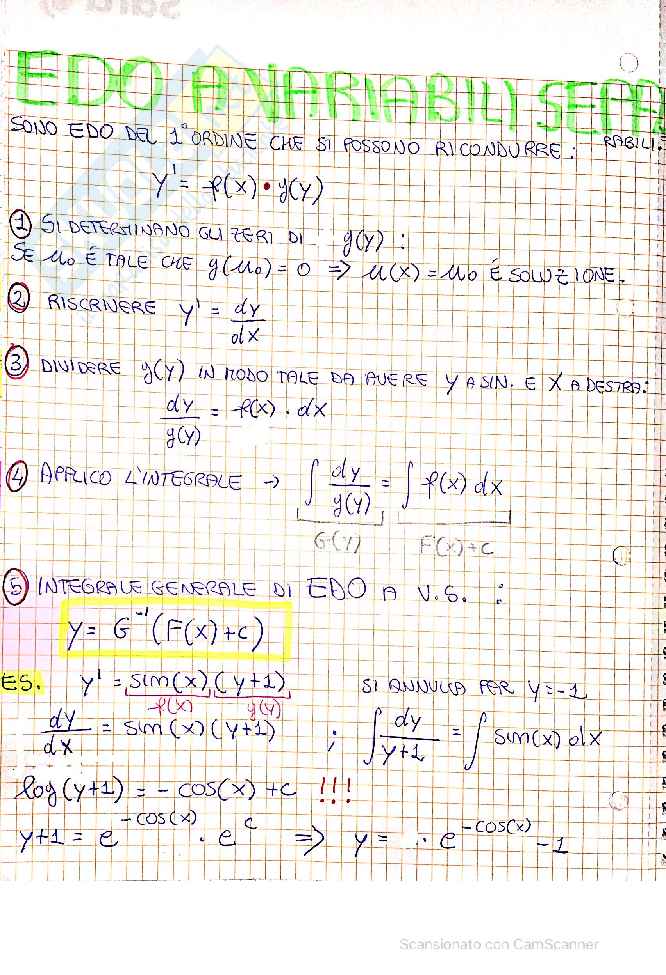 EDO A VARIABILI SEPA
RABILI.
SONO EDO DEL 1° ORDINE CHE SI POSSONO RICONDURRE:
y' = f(x) • g(y)
① SI DETERMINANO GLI ZERI DI g(y) :
SE u₀ É TALE CHE g(u₀) = 0 ⇒ u(x) = u₀ É SOLUZIONE.
② RISCRIVERE y' = dy/dx
③ DIVIDERE g(y) IN MODO TALE DA AVERE y A SIN. E X A DESTRA:
dy/g(y) = f(x) · dx
④ APPLICO L'INTEGRALE → ∫ dy/g(y) = ∫ f(x) dx
G(y) F(x)+c
⑤ INTEGRALE GENERALE DI EDO A V.S. :
y = G⁻¹(F(x)+c)
ES. y' = sin(x)(y+1) SI ANNULLA PER y=-1
f(x) g(y)
dy/dx = sin(x)(y+1) ; ∫ dy/y+1 = ∫ sin(x) dx
log(y+1) = -cos(x) +c !!!
y+1 = e^-cos(x) · e^c ⇒ y = · e^-cos(x) -1
Scansionato con CamScanner